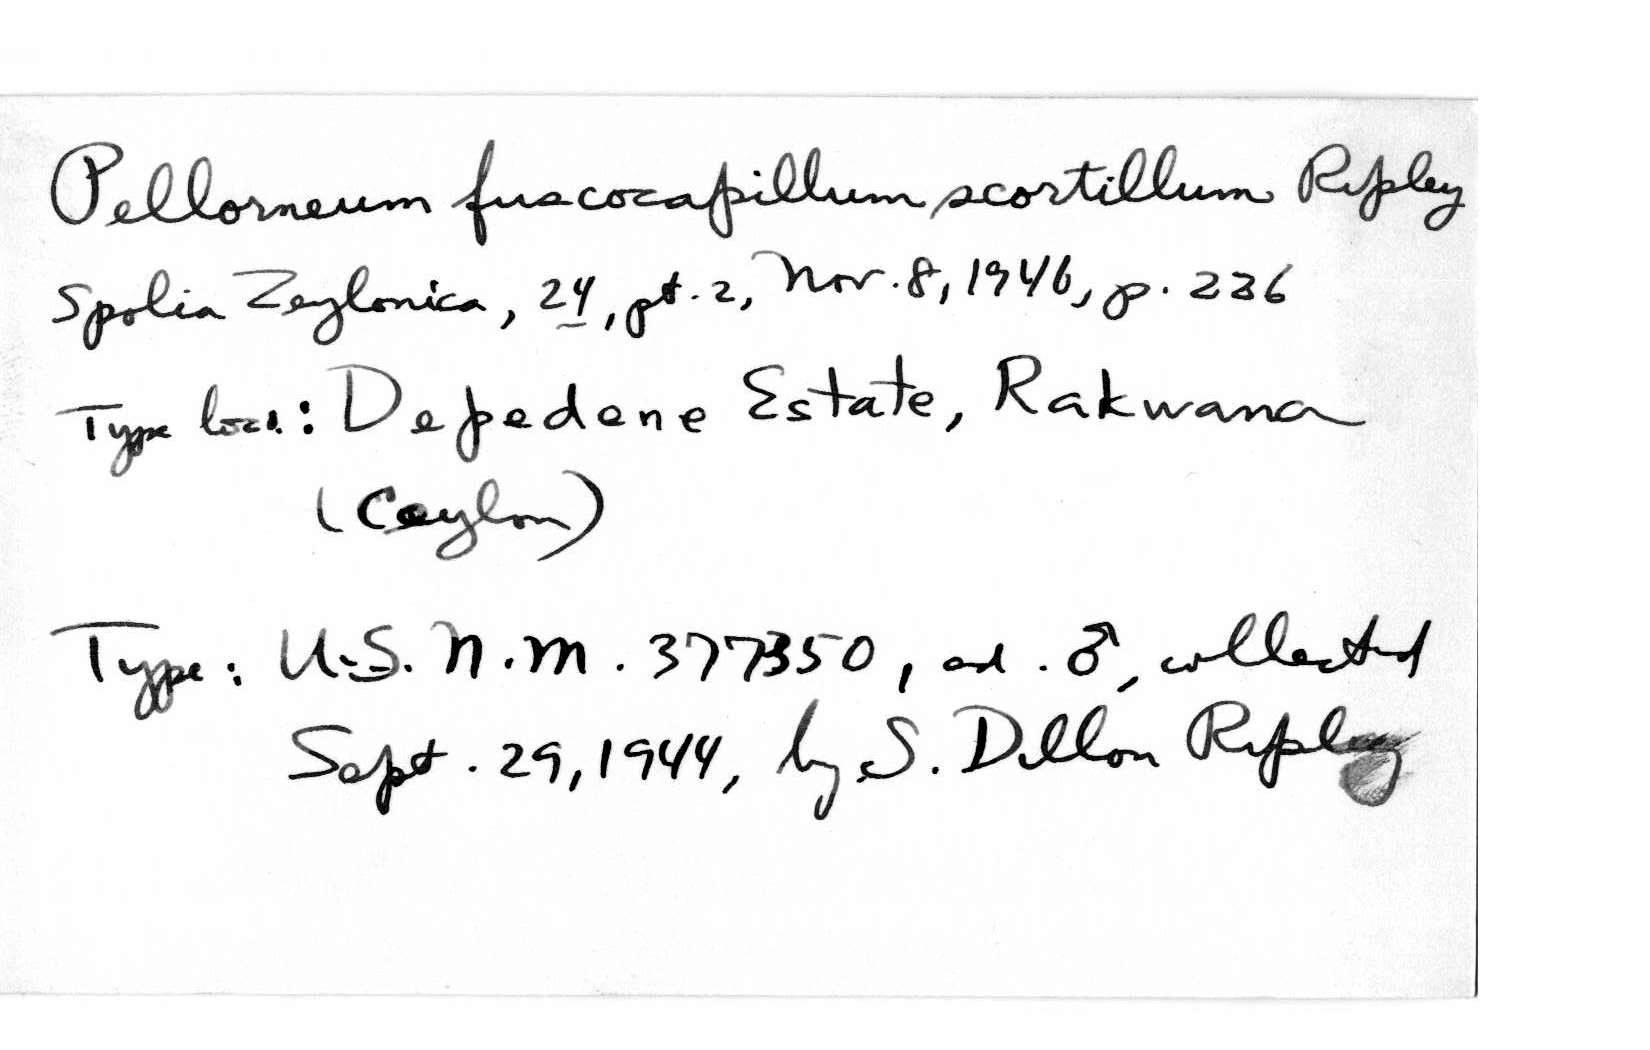 Pellorneum fuscocapillum scortillum Ripley
Spolia Zeylonica, 24, pt. 2, Nov. 8, 1946, p. 236
Type loc.: Depedene Estate, Rakwana
(Ceylon)
Type: U.S.N.M. 377350, ad. ♂, collected
Sept. 29, 1944, by S. Dillon Ripley